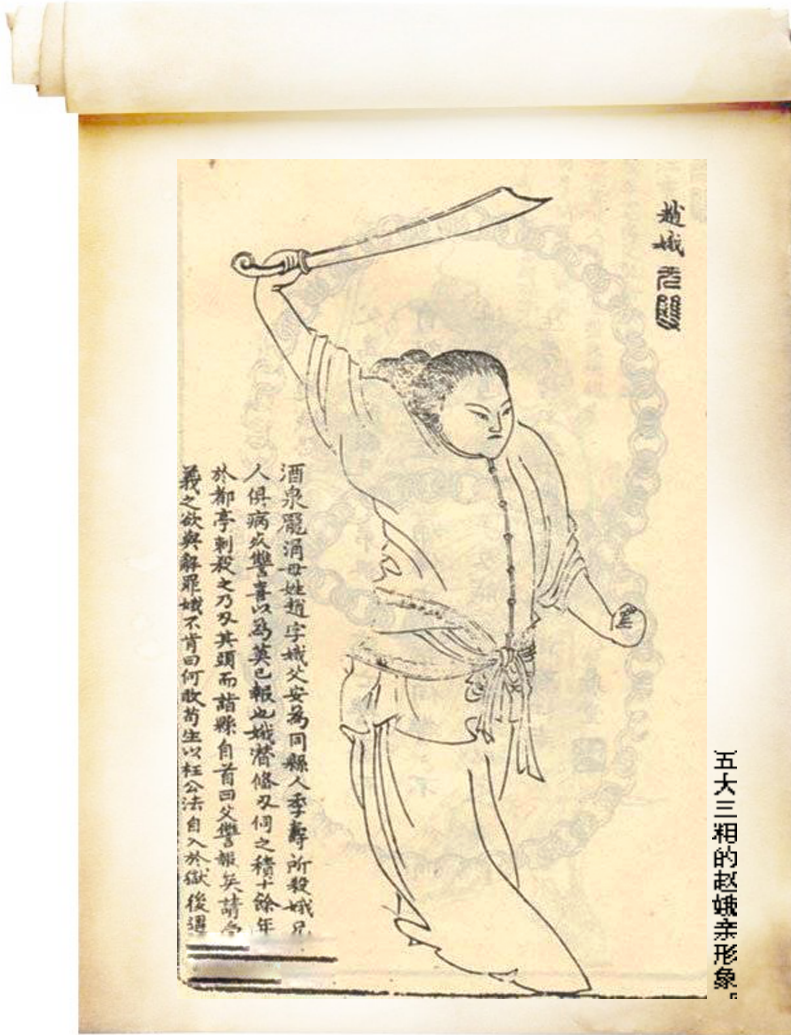 趙娥 无雙
酒泉龐淯母姓趙字娥父安為同縣人李壽所殺娥兄
人俱病死讐喜以為莫己報也娥潛俻刃伺之積十餘年
於都亭刺殺之乃刃其頭而詣縣自首曰父讐報矣請受
義之欲與解罪娥不肯曰何敢苟生以枉公法自入於獄後遇
五大三粗的赵娥亲形象。